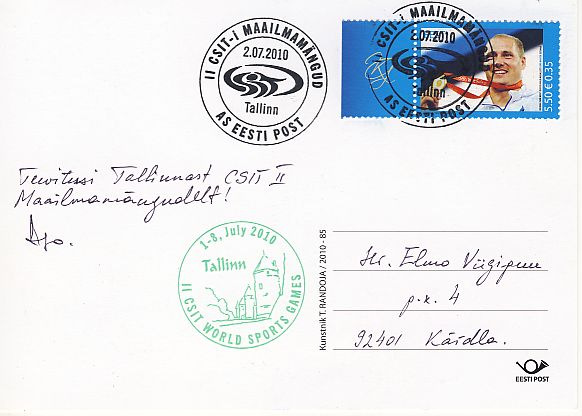 II CSIT-i MAAILMAMÄNGUD
2.07.2010
Tallinn
AS EESTI POST
II CSIT-i MAAILMAMÄNGUD
2.07.2010
Tallinn
AS EESTI POST
5.50 € 0.35
Tervitusi Tallinnast CSIT II
Maailmamängudelt!
Ajo.
1-8, July 2010
Tallinn
II CSIT WORLD SPORTS GAMES
Kunstnik T. RANDOJA / 2010 - 85
Hr. Elmo Viigipuu
p.k. 4
92401 Kärdla.
EESTI POST